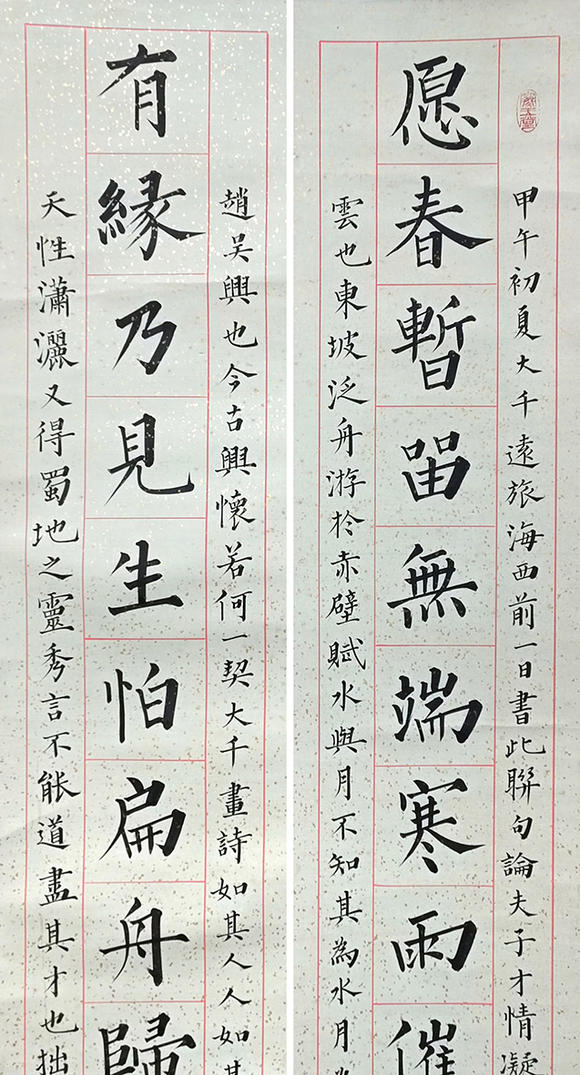 甲午初夏大千遠旅海西前一日書此聯句論夫子才情凝
愿春暫留無端寒雨催
雲也東坡泛舟游於赤壁賦水與月不知其為水月
趙吴興也今古興懷若何一契大千畫詩如其人人如其
有緣乃見生怕扁舟歸
天性瀟灑又得蜀地之靈秀言不能道盡其才也拙